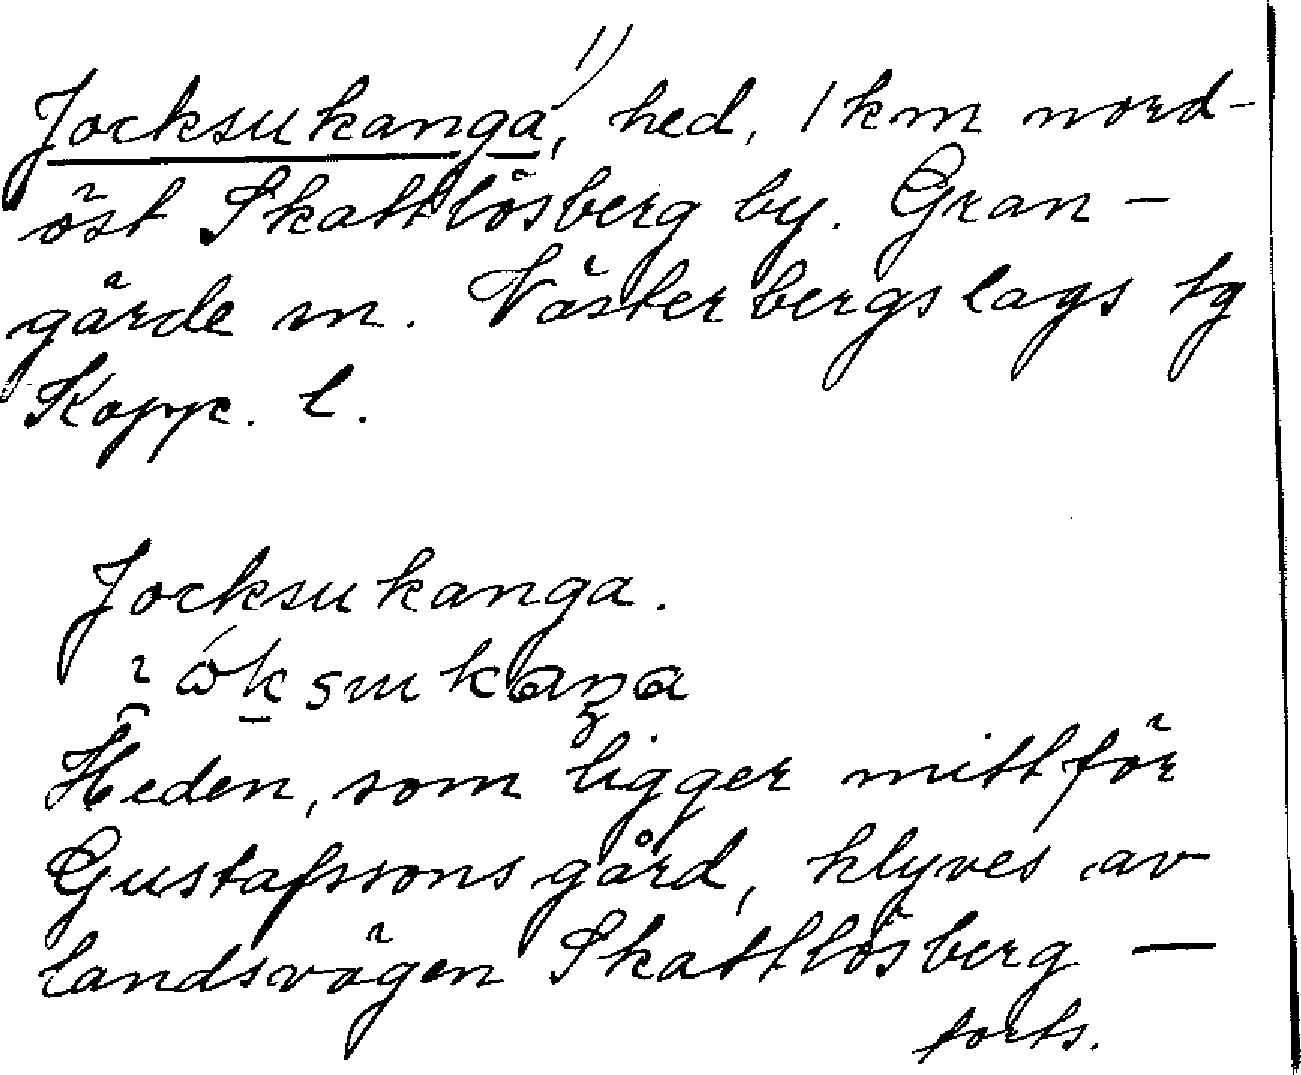 Jocksukanga, 1) hed, 1 km nord-
öst Skattlösberg by. Gran-
gärde sn. Västerbergslags tg
Kopp. l.
Jocksukanga.
Heden, som ligger mittför
Gustafssons gård, klyves av
landsvägen Skattlösberg —
forts.